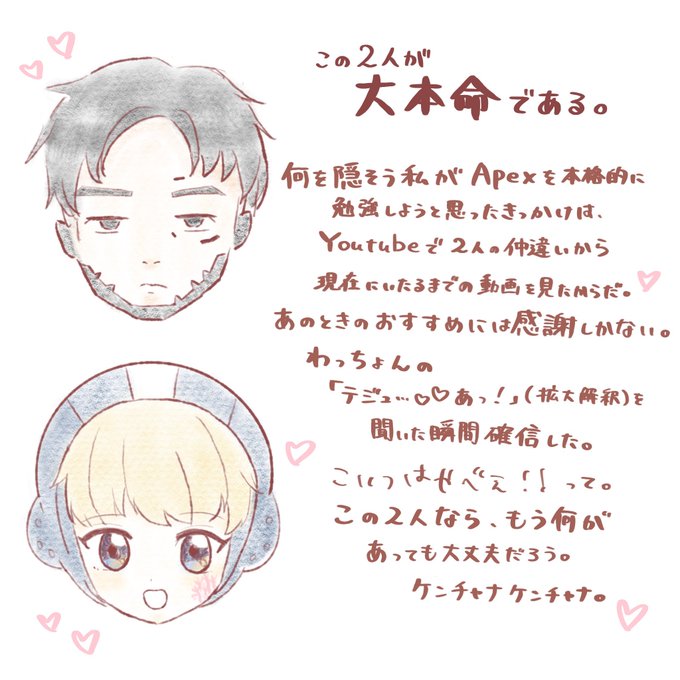 この2人が
大本命である。
何を隠そう私がApexを本格的に
勉強しようと思ったきっかけは、
Youtubeで2人の仲違いから
現在にいたるまでの動画を見たからだ。
あのときのおすすめには感謝しかない。
わっちょんの
「テジュ…♡♡あっ！」(拡大解釈)を
聞いた瞬間確信した。
こいつはやべぇ！！って。
この2人なら、もう何が
あっても大丈夫だろう。
ケンチャナケンチャナ。